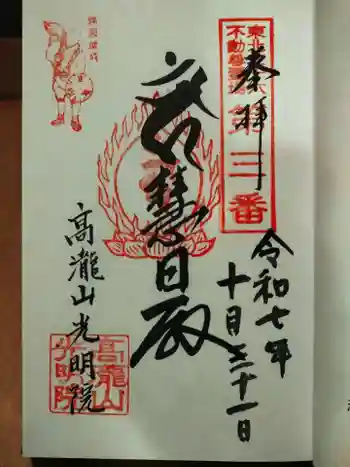 奉拝
東北
不動尊霊場
第三番
令和七年
十月三十一日
慧日殿
高瀧山光明院
髙瀧山
光明院